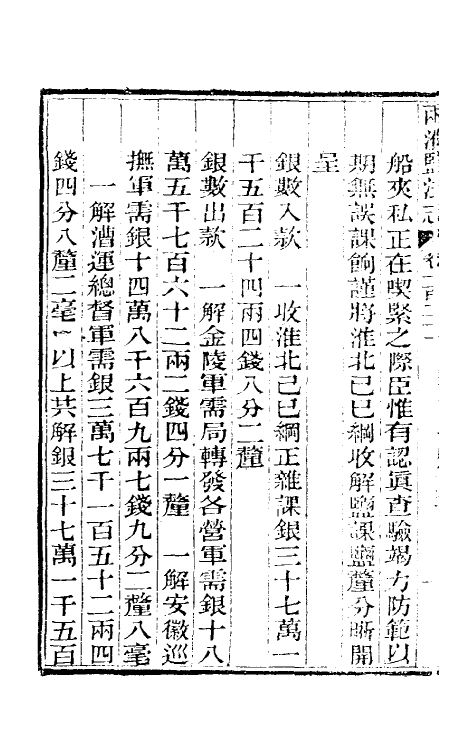 兩淮鹽法志
船夾私正在喫緊之際臣惟有認眞查驗竭力防範以
期無誤課餉謹將淮北己巳綱收解鹽課鹽釐分晰開
呈
銀數入款　一收淮北己巳綱正雜課銀三十七萬一
千五百二十四兩四錢八分二釐
銀數出款　一解金陵軍需局轉發各營軍需銀十八
萬五千七百六十二兩二錢四分一釐　一解安徽巡
撫軍需銀十四萬八千六百九兩七錢九分二釐八毫
一解漕運總督軍需銀三萬七千一百五十二兩四
錢四分八釐二毫　以上共解銀三十七萬一千五百